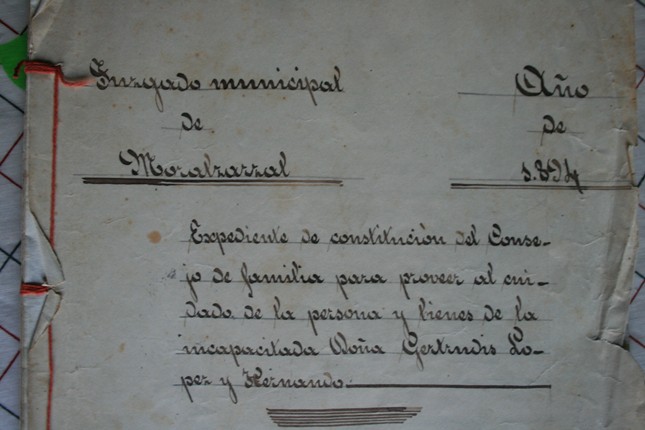 Juzgado municipal
de
Moralzarzal
Año
de
1.894
Expediente de constitución del Conse-
jo de familia para proveer al cui-
dado de la persona y bienes de la
incapacitada Doña Gertrudis Lo-
pez y Hernando.